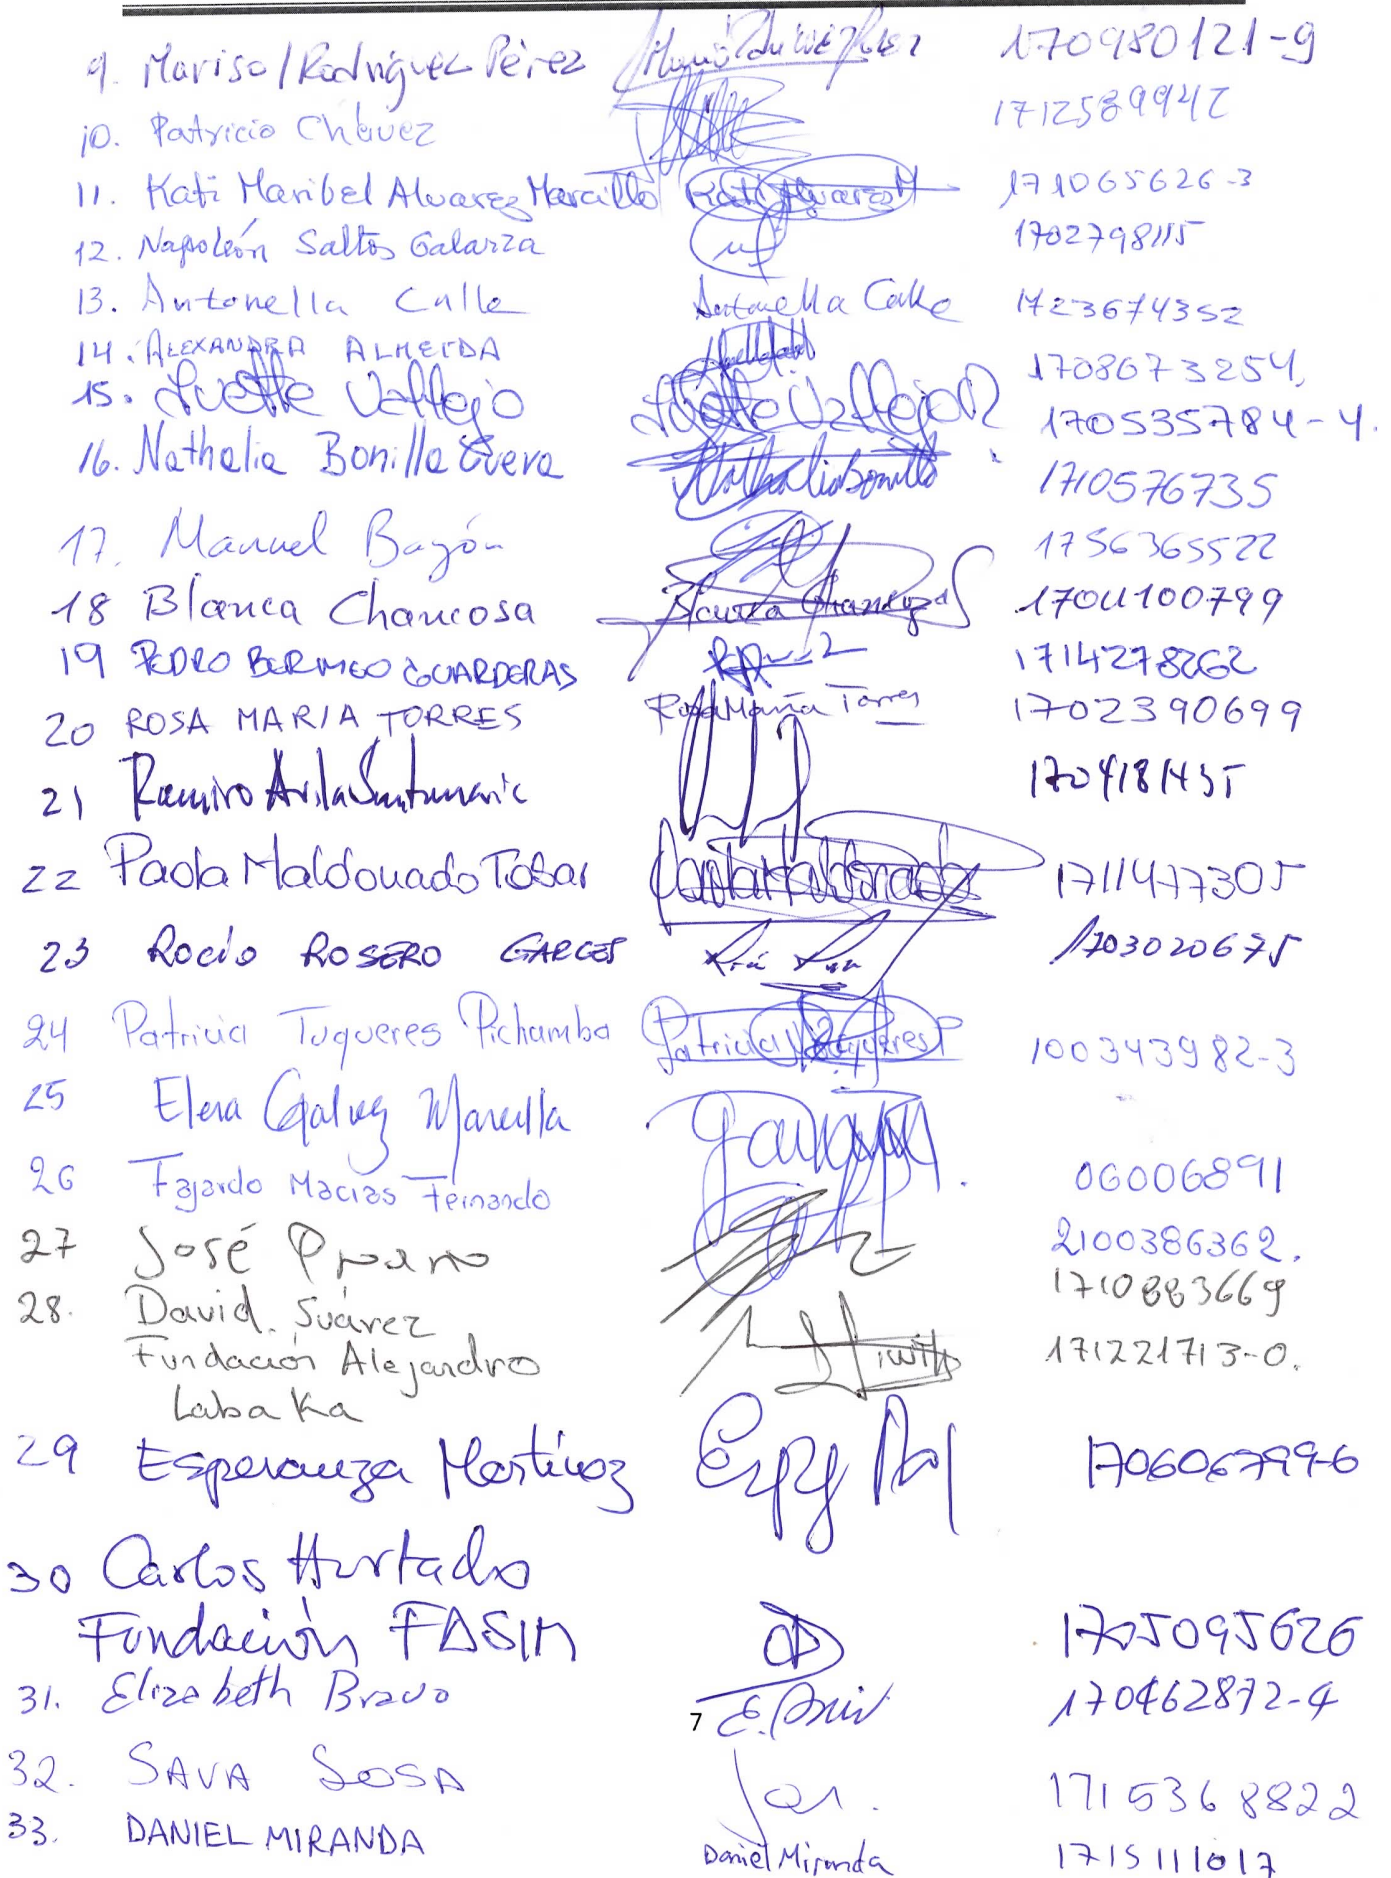 9. Marisol Rodríguez Pérez 170980121-9
10. Patricio Chávez 1712589942
11. Kati Maribel Alvarez Marcillo Kati Alvarez M 171065626-3
12. Napoleón Saltos Galarza 1702798115
13. Antonella Calle Antonella Calle 1723674352
14. ALEXANDRA ALMEIDA 1708673254
15. Ivette Vallejo Ivette Vallejo R 170535784-4.
16. Nathalia Bonilla Cueva Nathalia Bonilla 1710576735
17. Manuel Bayón 1756365522
18 Blanca Chancosa Blanca Chancosa 1704100799
19 PEDRO BERMEO GUARDERAS 1714278262
20 ROSA MARIA TORRES Rosa María Torres 1702390699
21 Ramiro Avila Santamaria 1704181435
22 Paola Maldonado Tobar Paola Maldonado 1711477305
23 Rocío ROSERO GARCES 1703020675
24 Patricia Tuqueres Pichamba Patricia Tuqueres P 100343982-3
25 Elena Galvez Mancilla
26 Fajardo Macías Fernando 06006891
27 José 2100386362.
28. David Suárez 1710883669
Fundación Alejandro 171221713-0.
Labaka
29 Esperanza Martínez 170606799-6
30 Carlos Hurtado
Fundación FASIM 1705095626
31. Elizabeth Bravo E. Bravo 170462872-4
7
32. SAVA SOSA 1715368822
33. DANIEL MIRANDA Daniel Miranda 1715111017